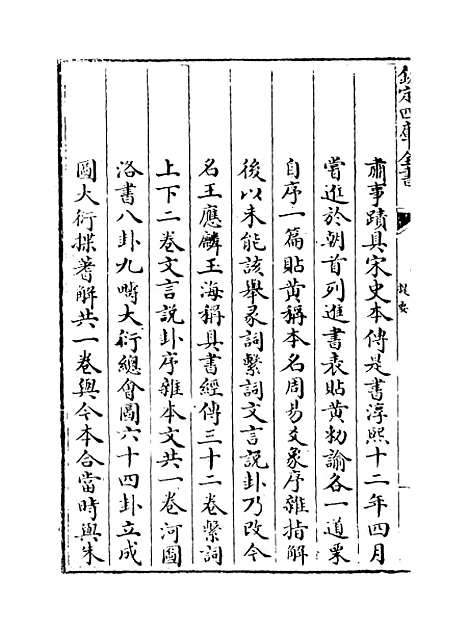 欽定四庫全書
提要
肅事蹟具宋史本傳是書淳熙十二年四月
嘗進於朝首列進書表貼黃勑諭各一道栗
自序一篇貼黃稱本名周易爻象序雜指解
後以未能該舉彖詞繫詞文言説卦乃改今
名王應麟玉海稱其書經傳三十二卷繫詞
上下二卷文言説卦序雜本文共一卷河圖
洛書八卦九疇大衍總會圖六十四卦立成
圖大衍揲蓍解共一卷與今本合當時與朱